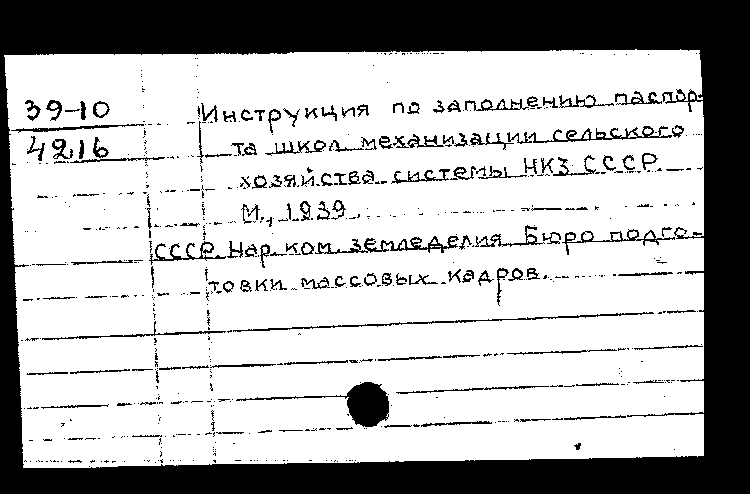 39-10
4216
Инструкция по заполнению паспор-
та школ механизации сельского
хозяйства системы НКЗ СССР.
М., 1939.
СССР. Нар. ком. земледелия. Бюро подго-
товки массовых кадров.